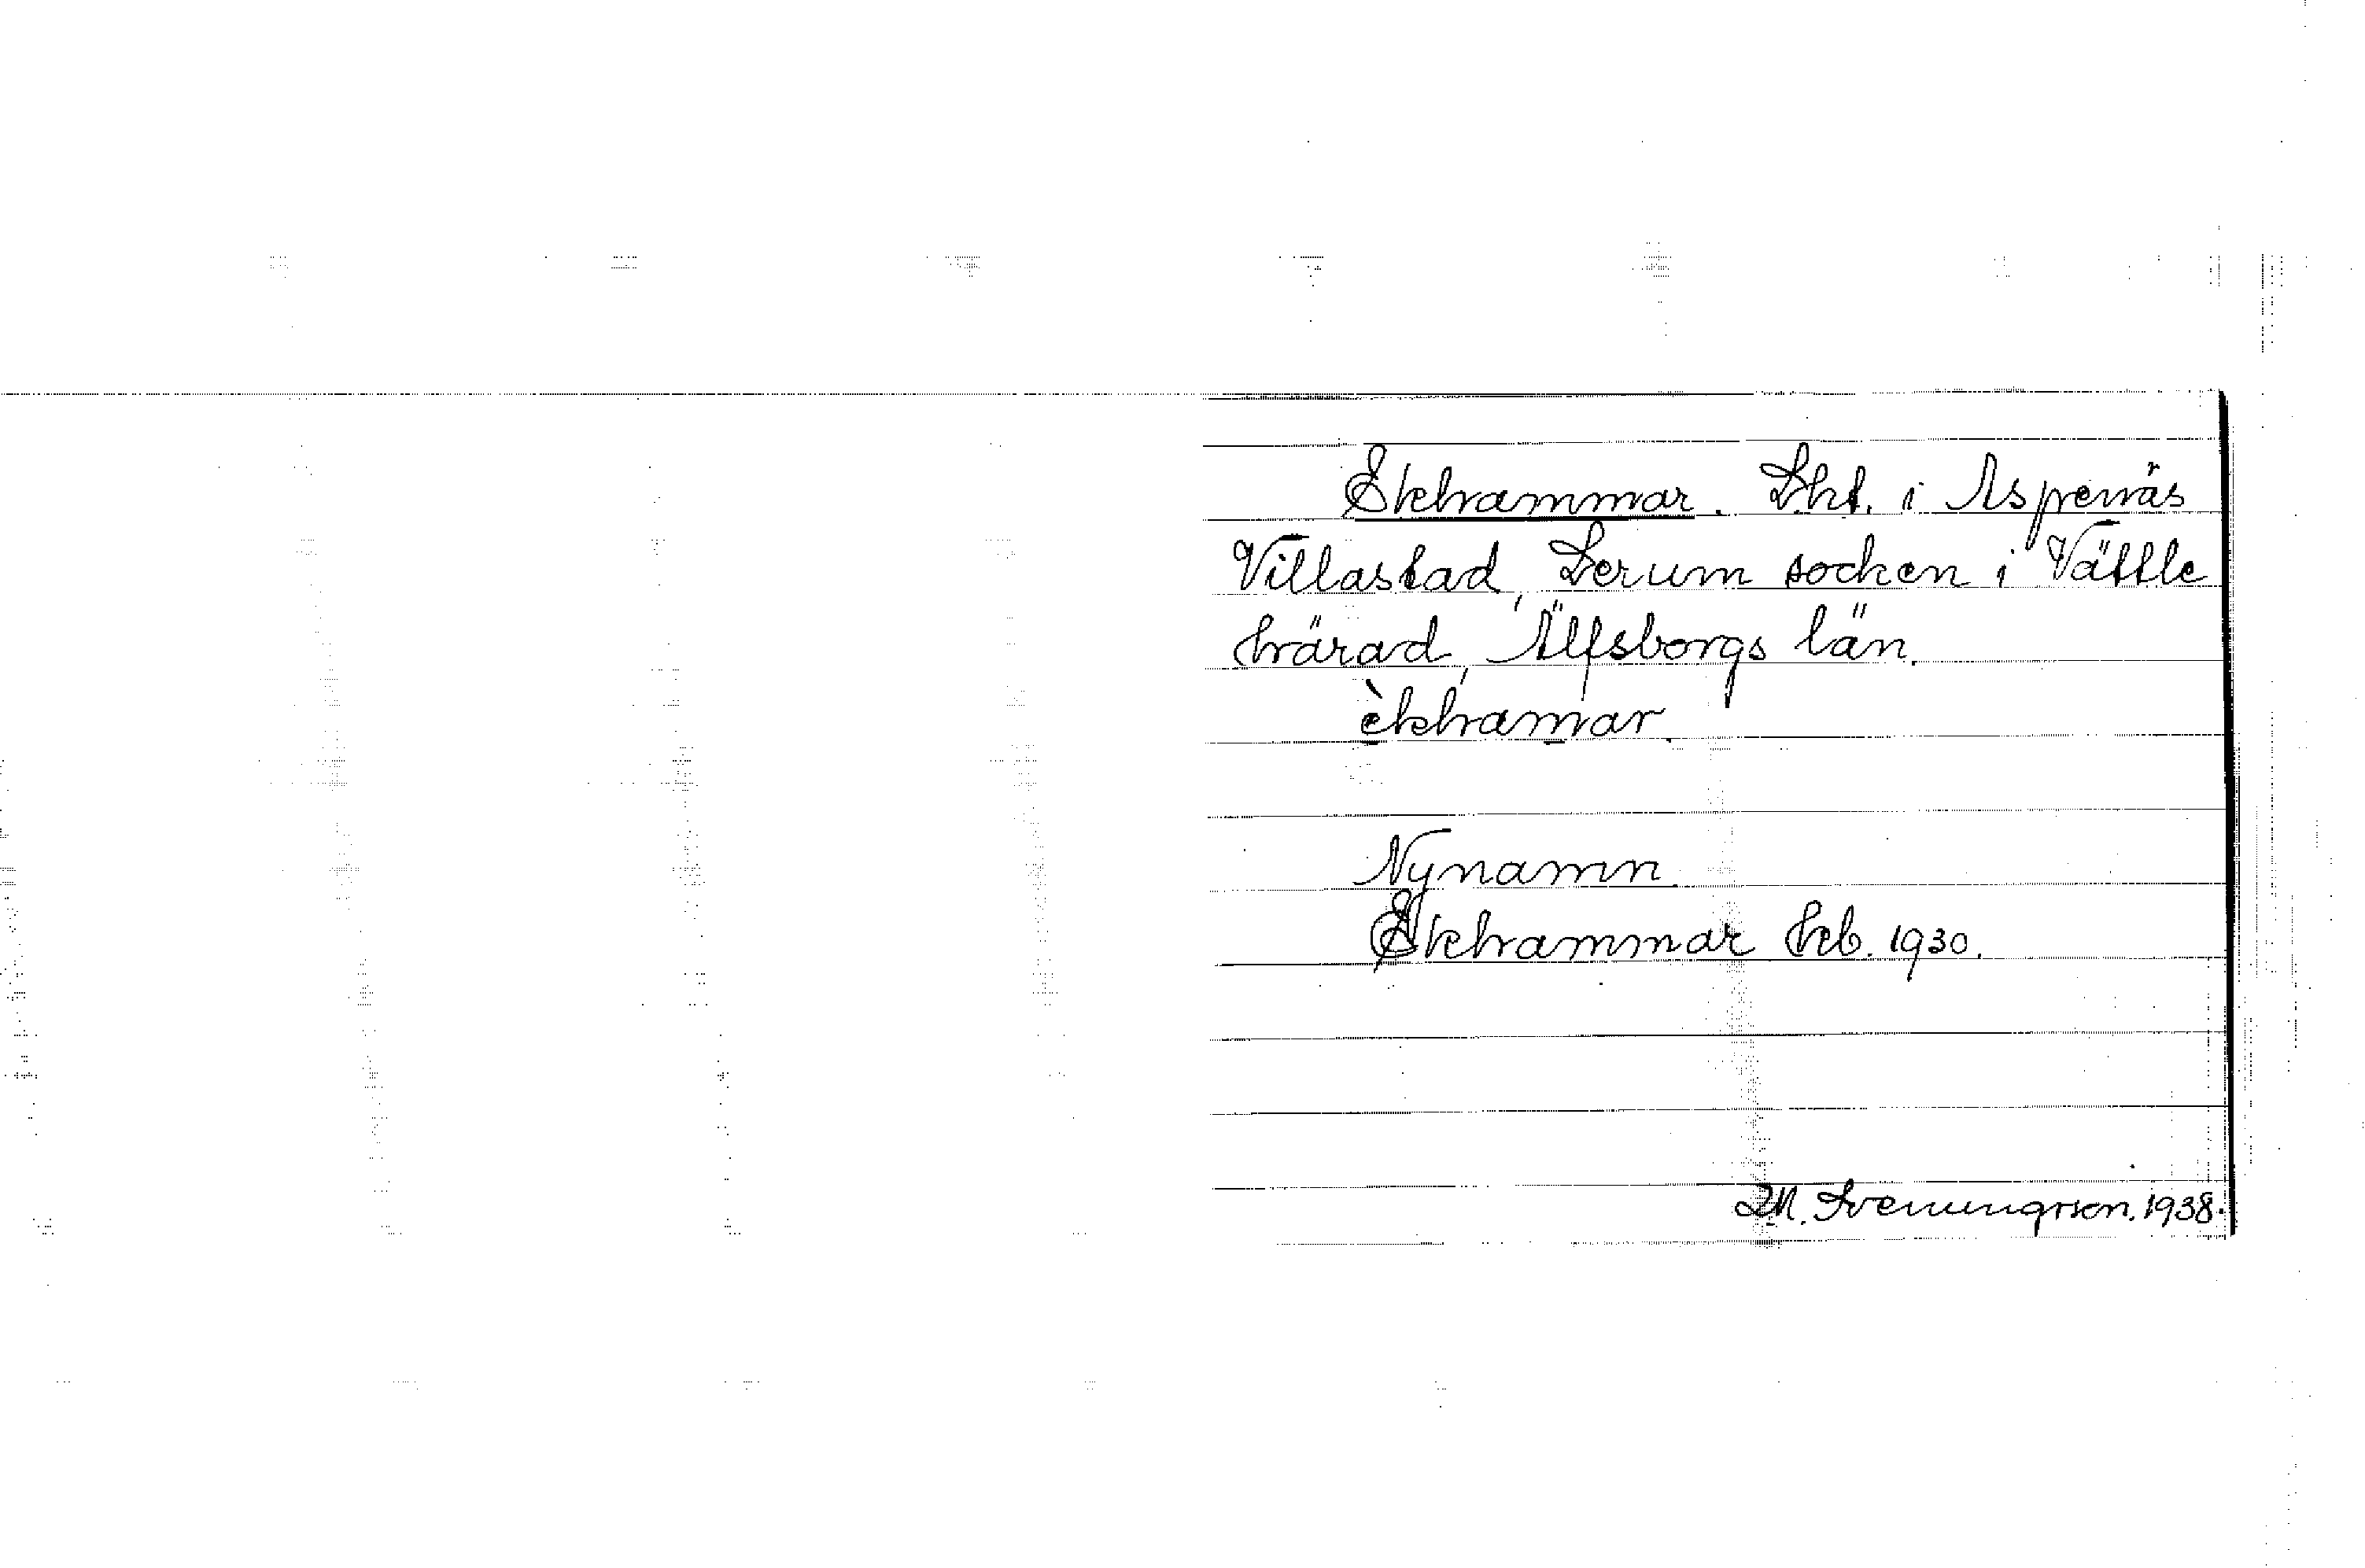 Ekhammar. Lht. i Aspenäs
Villastad, Lerum socken i Vättle
härad, Älfsborgs län.
èkhamar.
Nynamn.
Ekhammar Jrb. 1930.
M. Svenungsson. 1938.